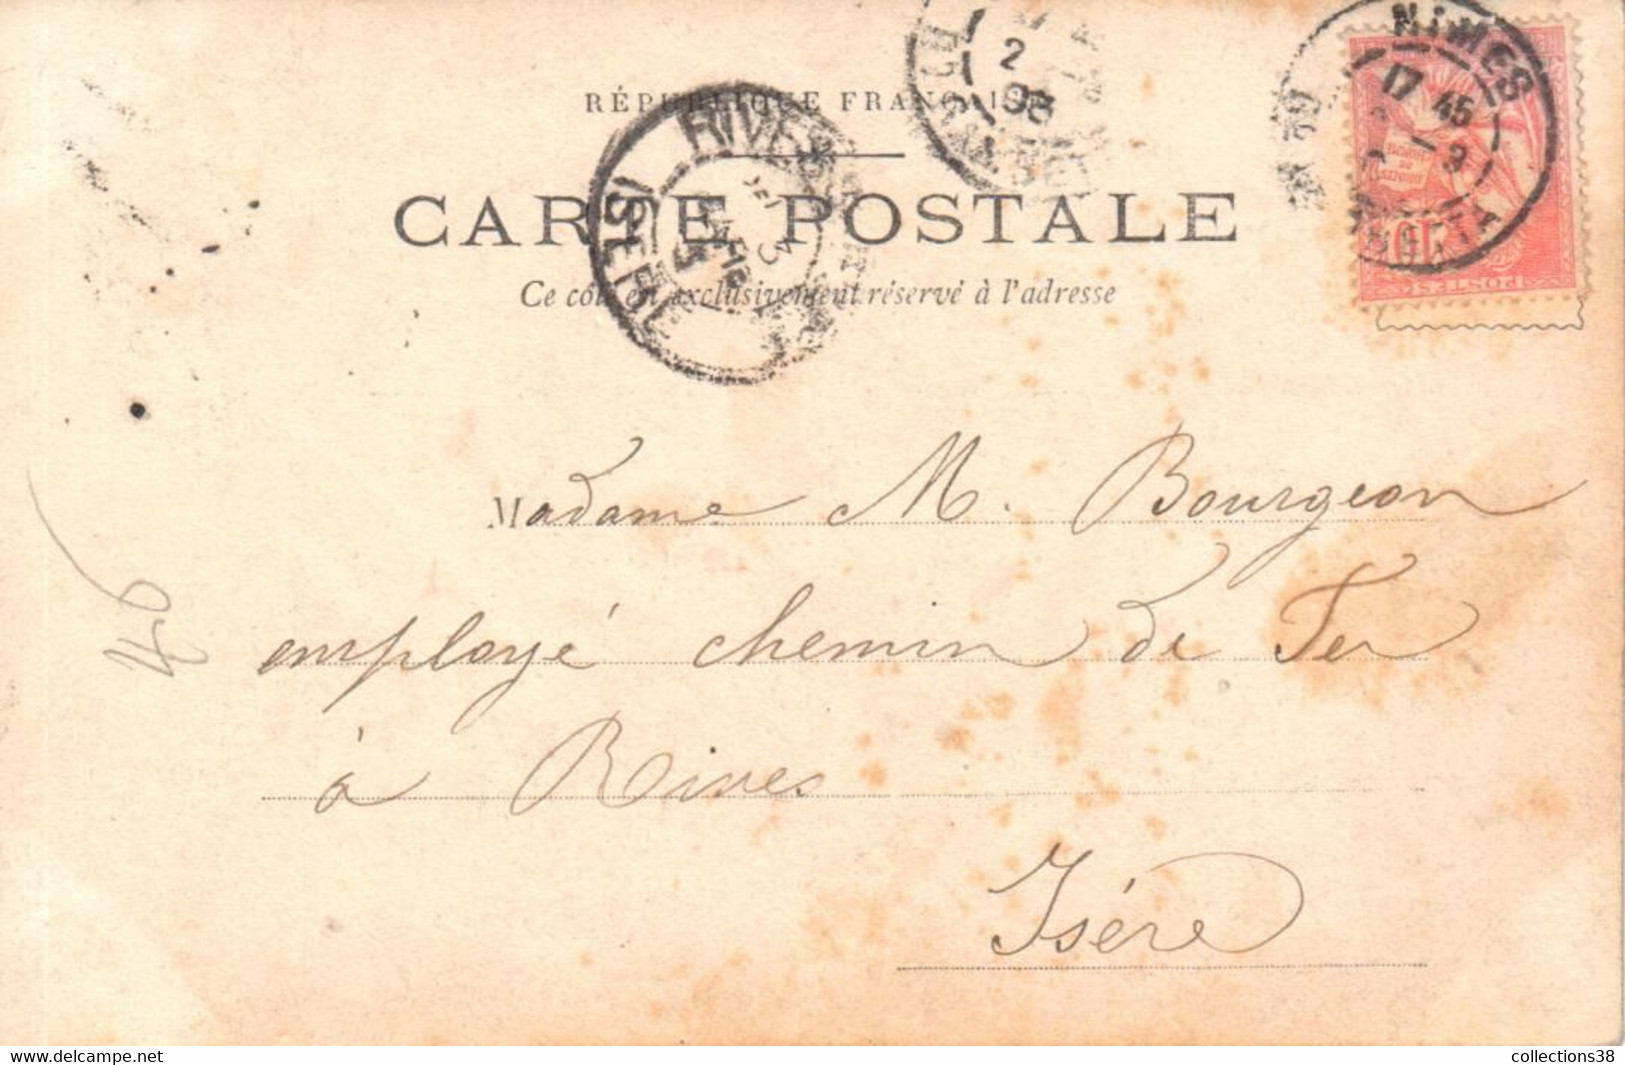 RÉPUBLIQUE FRANÇAISE
CARTE POSTALE
Ce côté est exclusivement réservé à l'adresse
NIMES
17 45
9
POSTES
RIVES
ISERE
2
Madame M. Bourgeon
employé chemin de Fer
à Rives
Isère
collections38